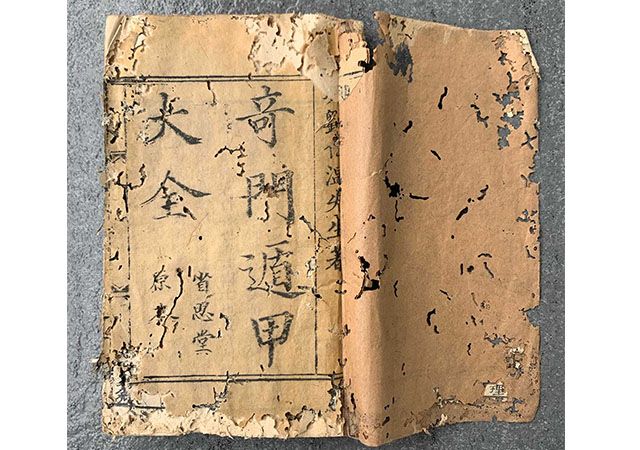 劉伯溫先生著
奇門遁甲
大全
省思堂
原